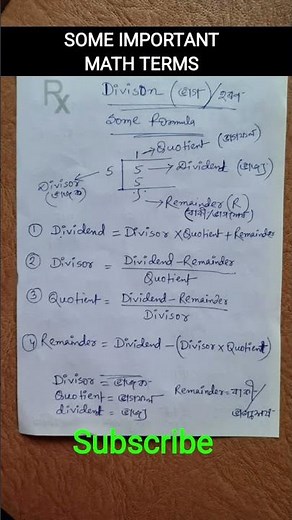 SOME IMPORTANT
MATH TERMS
Rx
Divison (ভাগ)/হরণ
some formula
1 → Quotient (ভাগফল)
5 5 → Dividend (ভাজ্য)
Divisor (ভাজক)
5
→ Remainder (R)
① Dividend = Divisor × Quotient + Remainder
② Divisor = Dividend - Remainder
Quotient
③ Quotient = Dividend - Remainder
Divisor
④ Remainder = Dividend - (Divisor × Quotient)
Divisor = ভাজক
Quotient = ভাগফল
dividend = ভাজ্য
Remainder =
Subscribe